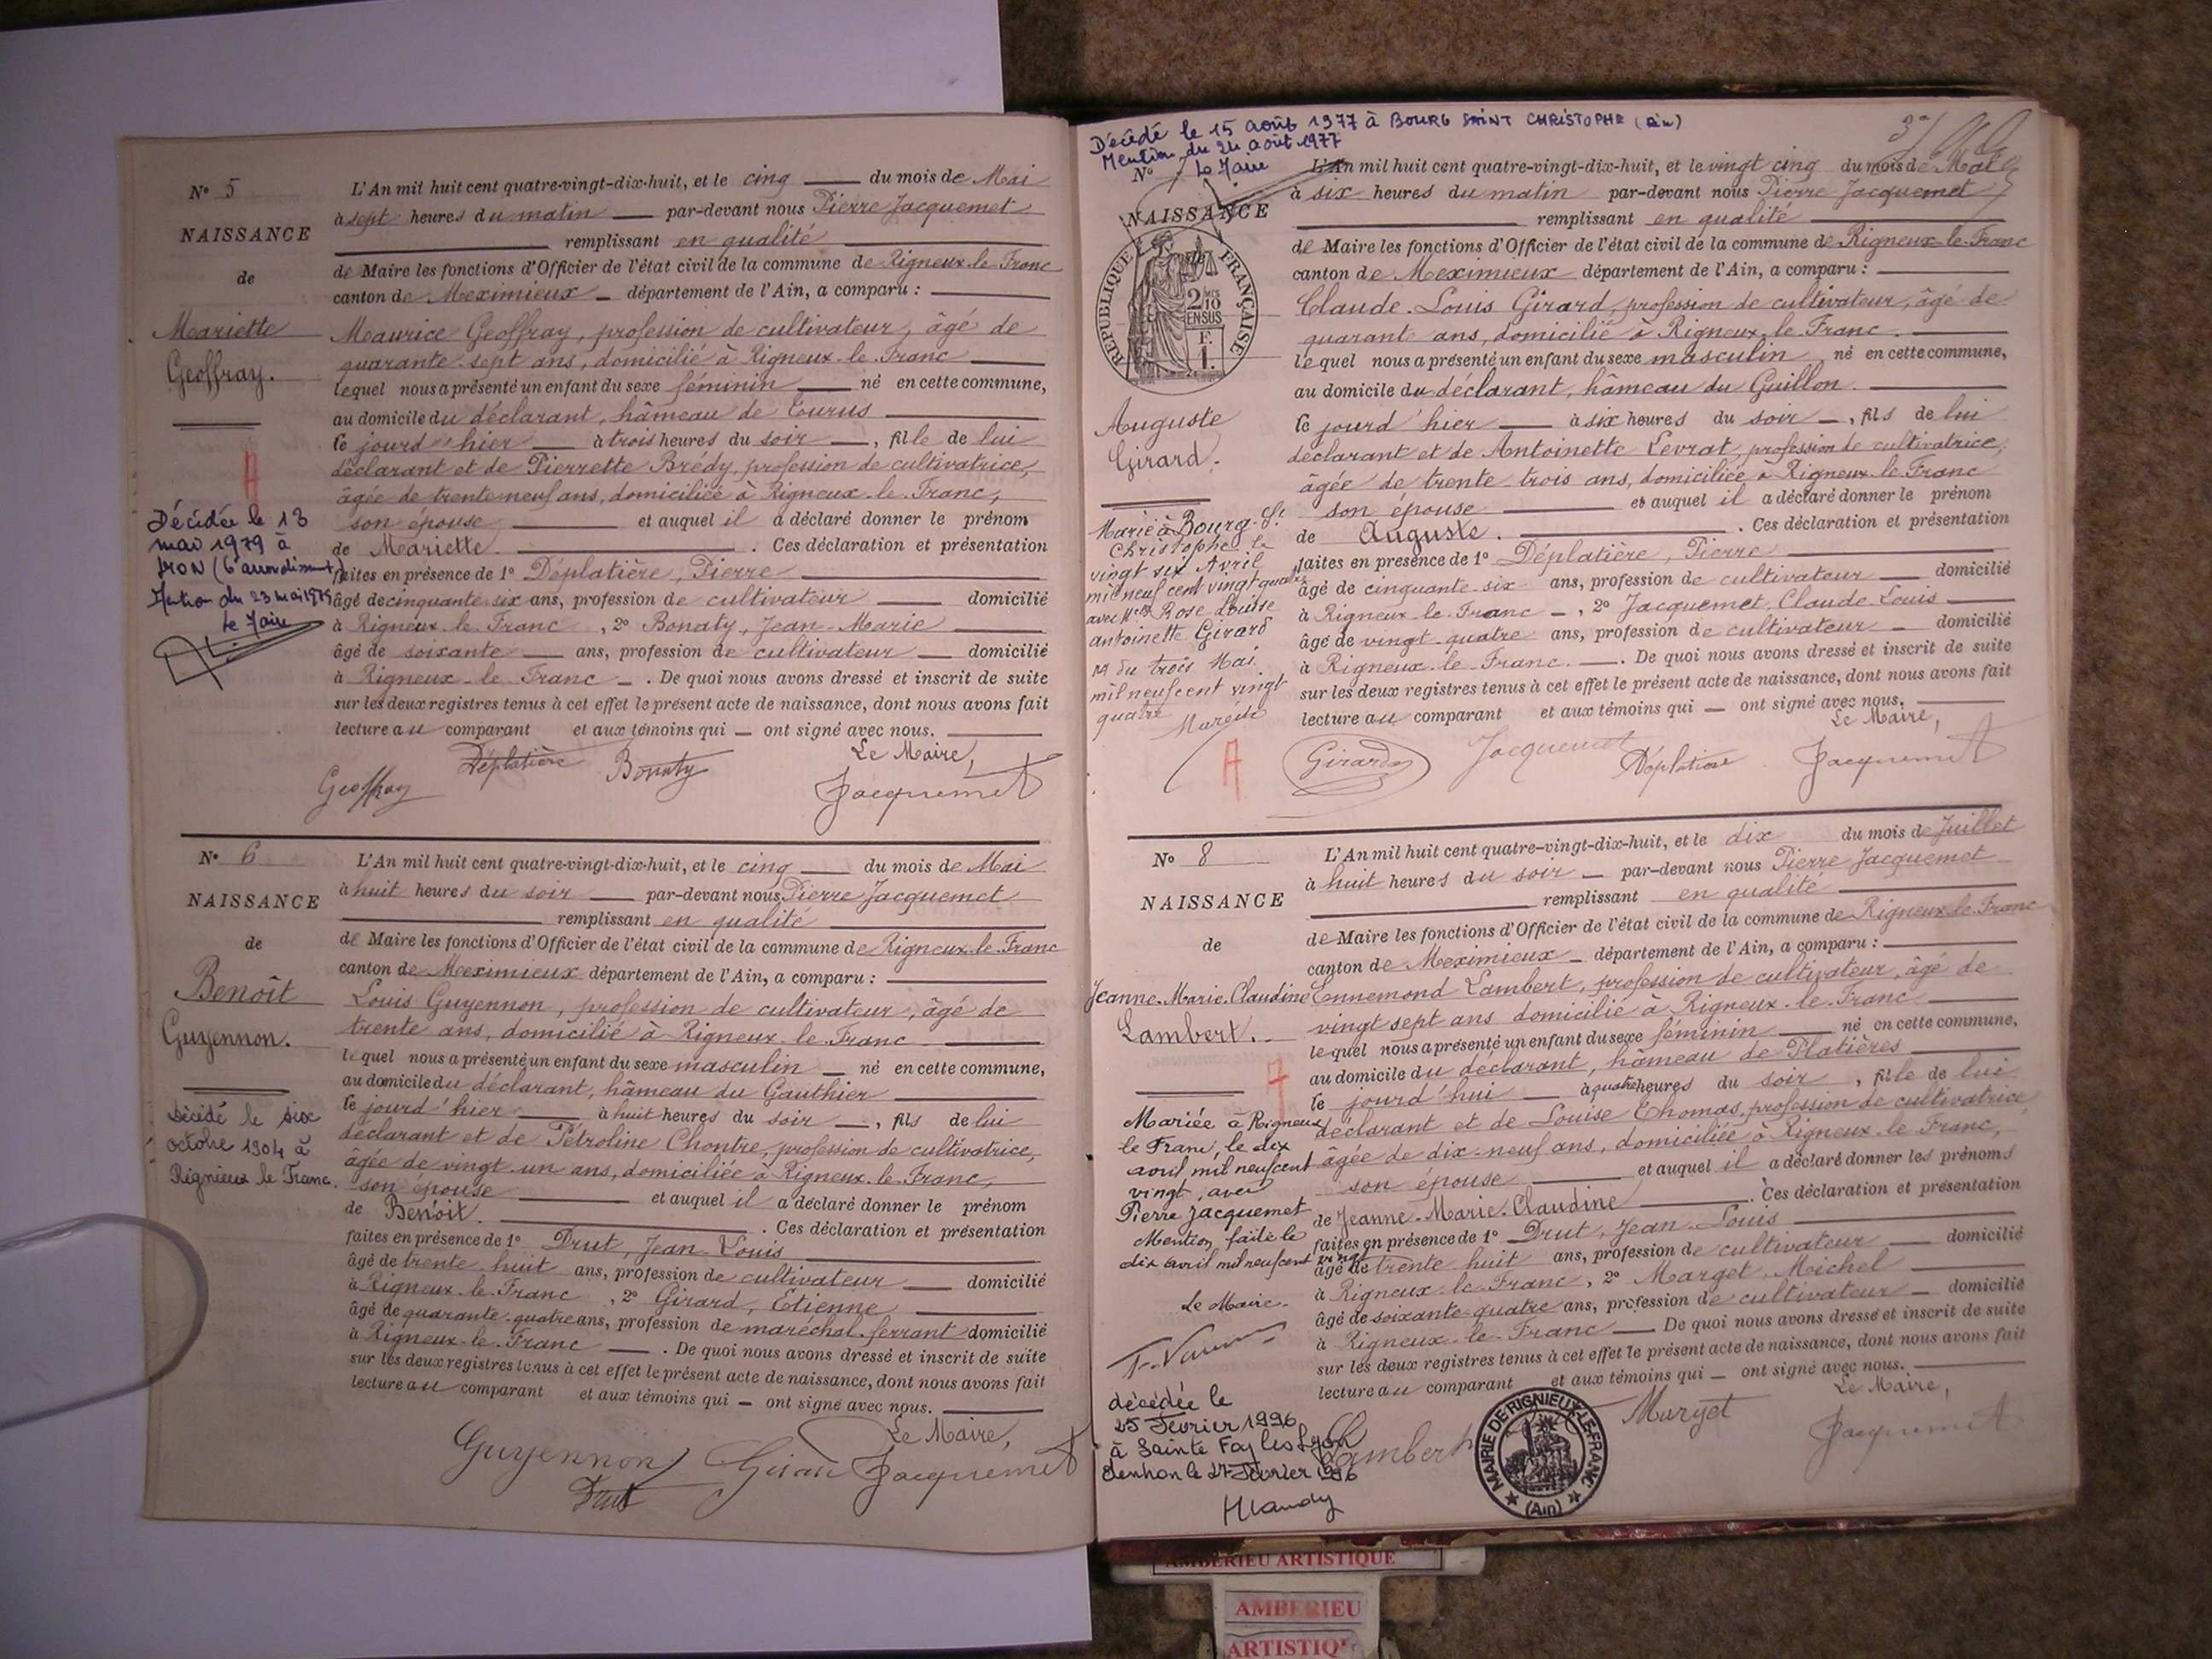 N° 5
NAISSANCE
de
Mariette
Geoffray.
A
Décédée le 13
mai 1979 à
LYON (6e arrondissement)
Mention du 23 mai 1979
Le Maire
L'An mil huit cent quatre-vingt-dix-huit, et le cinq du mois de Mai
à sept heures du matin par-devant nous Pierre Jacquemet
remplissant en qualité
de Maire les fonctions d'Officier de l'état civil de la commune de Rigneux-le-Franc
canton de Meximieux département de l'Ain, a comparu :
Maurice Geoffray, profession de cultivateur, âgé de
quarante-sept ans, domicilié à Rigneux-le-Franc
lequel nous a présenté un enfant du sexe féminin né en cette commune,
au domicile du déclarant, hâmeau de Tourus
le jourd'hier à trois heures du soir, fille de lui
déclarant et de Pierrette Brédy, profession de cultivatrice,
âgée de trente neuf ans, domiciliée à Rigneux-le-Franc,
son épouse et auquel il a déclaré donner le prénom
de Mariette. Ces déclaration et présentation
faites en présence de 1° Déplatière, Pierre
âgé de cinquante-six ans, profession de cultivateur domicilié
à Rigneux-le-Franc, 2° Bonaty, Jean-Marie
âgé de soixante ans, profession de cultivateur domicilié
à Rigneux-le-Franc. De quoi nous avons dressé et inscrit de suite
sur les deux registres tenus à cet effet le présent acte de naissance, dont nous avons fait
lecture au comparant et aux témoins qui ont signé avec nous.
Le Maire,
Geoffray Déplatière Bonaty Jacquemet
N° 6
NAISSANCE
de
Benoît
Guyennon.
Décédé le six
octobre 1904 à
Rignieux le Franc.
L'An mil huit cent quatre-vingt-dix-huit, et le cinq du mois de Mai
à huit heures du soir par-devant nous Pierre Jacquemet
remplissant en qualité
de Maire les fonctions d'Officier de l'état civil de la commune de Rigneux-le-Franc
canton de Meximieux département de l'Ain, a comparu :
Louis Guyennon, profession de cultivateur, âgé de
trente ans, domicilié à Rigneux-le-Franc
lequel nous a présenté un enfant du sexe masculin né en cette commune,
au domicile du déclarant, hâmeau du Gauthier
le jourd'hier à huit heures du soir, fils de lui
déclarant et de Pétroline Chontre, profession de cultivatrice,
âgée de vingt-un ans, domiciliée à Rigneux-le-Franc,
son épouse et auquel il a déclaré donner le prénom
de Benoît. Ces déclaration et présentation
faites en présence de 1° Drut, Jean-Louis
âgé de trente huit ans, profession de cultivateur domicilié
à Rigneux-le-Franc, 2° Girard, Etienne
âgé de quarante-quatre ans, profession de maréchal-ferrant domicilié
à Rigneux-le-Franc. De quoi nous avons dressé et inscrit de suite
sur les deux registres tenus à cet effet le présent acte de naissance, dont nous avons fait
lecture au comparant et aux témoins qui ont signé avec nous.
Le Maire,
Guyennon Girard Jacquemet
Drut
Décédé le 15 août 1977 à BOURG SAINT CHRISTOPHE (Ain)
Mention du 24 août 1977
Le Maire
N°
NAISSANCE
de
REPUBLIQUE FRANÇAISE
2/10
EN SUS
F.
1.
Auguste
Girard.
Marié à Bourg-St
Christophe le
vingt six Avril
mil neuf cent vingt quatre
avec Melle Rose Louise
Antoinette Girard
M du trois Mai
mil neuf cent vingt-
quatre
A
L'An mil huit cent quatre-vingt-dix-huit, et le vingt cinq du mois de Mai
à six heures du matin par-devant nous Pierre Jacquemet
remplissant en qualité
de Maire les fonctions d'Officier de l'état civil de la commune de Rigneux-le-Franc
canton de Meximieux département de l'Ain, a comparu :
Claude-Louis Girard, profession de cultivateur, âgé de
quarante ans, domicilié à Rigneux-le-Franc.
lequel nous a présenté un enfant du sexe masculin né en cette commune,
au domicile du déclarant, hâmeau du Guillon.
le jourd'hier à six heures du soir, fils de lui
déclarant et de Antoinette Levrat, profession de cultivatrice,
âgée de trente-trois ans, domiciliée à Rigneux-le-Franc
son épouse. et auquel il a déclaré donner le prénom
de Auguste. Ces déclaration et présentation
faites en présence de 1° Déplatière, Pierre
âgé de cinquante-six ans, profession de cultivateur domicilié
à Rigneux-le-Franc, 2° Jacquemet, Claude-Louis
âgé de vingt-quatre ans, profession de cultivateur domicilié
à Rigneux-le-Franc. De quoi nous avons dressé et inscrit de suite
sur les deux registres tenus à cet effet le présent acte de naissance, dont nous avons fait
lecture au comparant et aux témoins qui ont signé avec nous.
Le Maire,
Girard Jacquemet Déplatière Jacquemet
N° 8
NAISSANCE
de
Jeanne-Marie-Claudine
Lambert.
Mariée à Rigneux
le Franc, le dix
avril mil neuf cent
vingt, avec
Pierre Jacquemet
Mention faite le
dix avril mil neuf cent vingt
Le Maire.
décédée le
25 Février 1996
à Sainte Foy les Lyon
Mention le 27 Février 1996
L'An mil huit cent quatre-vingt-dix-huit, et le dix du mois de Juillet
à huit heures du soir par-devant nous Pierre Jacquemet
remplissant en qualité
de Maire les fonctions d'Officier de l'état civil de la commune de Rigneux-le-Franc
canton de Meximieux département de l'Ain, a comparu :
Ennemond Lambert, profession de cultivateur, âgé de
vingt sept ans domicilié à Rigneux-le-Franc
lequel nous a présenté un enfant du sexe féminin né en cette commune,
au domicile du déclarant, hâmeau de Platières
le jourd'hui à quatre heures du soir, fille de lui
déclarant et de Louise Thomas, profession de cultivatrice
âgée de dix-neuf ans, domiciliée à Rigneux-le-Franc,
son épouse et auquel il a déclaré donner les prénoms
de Jeanne-Marie-Claudine. Ces déclaration et présentation
faites en présence de 1° Drut, Jean-Louis
âgé de trente huit ans, profession de cultivateur domicilié
à Rigneux-le-Franc, 2° Marget, Michel
âgé de soixante-quatre ans, profession de cultivateur domicilié
à Rigneux-le-Franc De quoi nous avons dressé et inscrit de suite
sur les deux registres tenus à cet effet le présent acte de naissance, dont nous avons fait
lecture au comparant et aux témoins qui ont signé avec nous.
Le Maire,
Lambert Marget Jacquemet
MAIRIE DE RIGNIEUX-LE-FRANC
(Ain)
AMBERIEU ARTISTIQUE
AMBERIEU
ARTISTIQUE